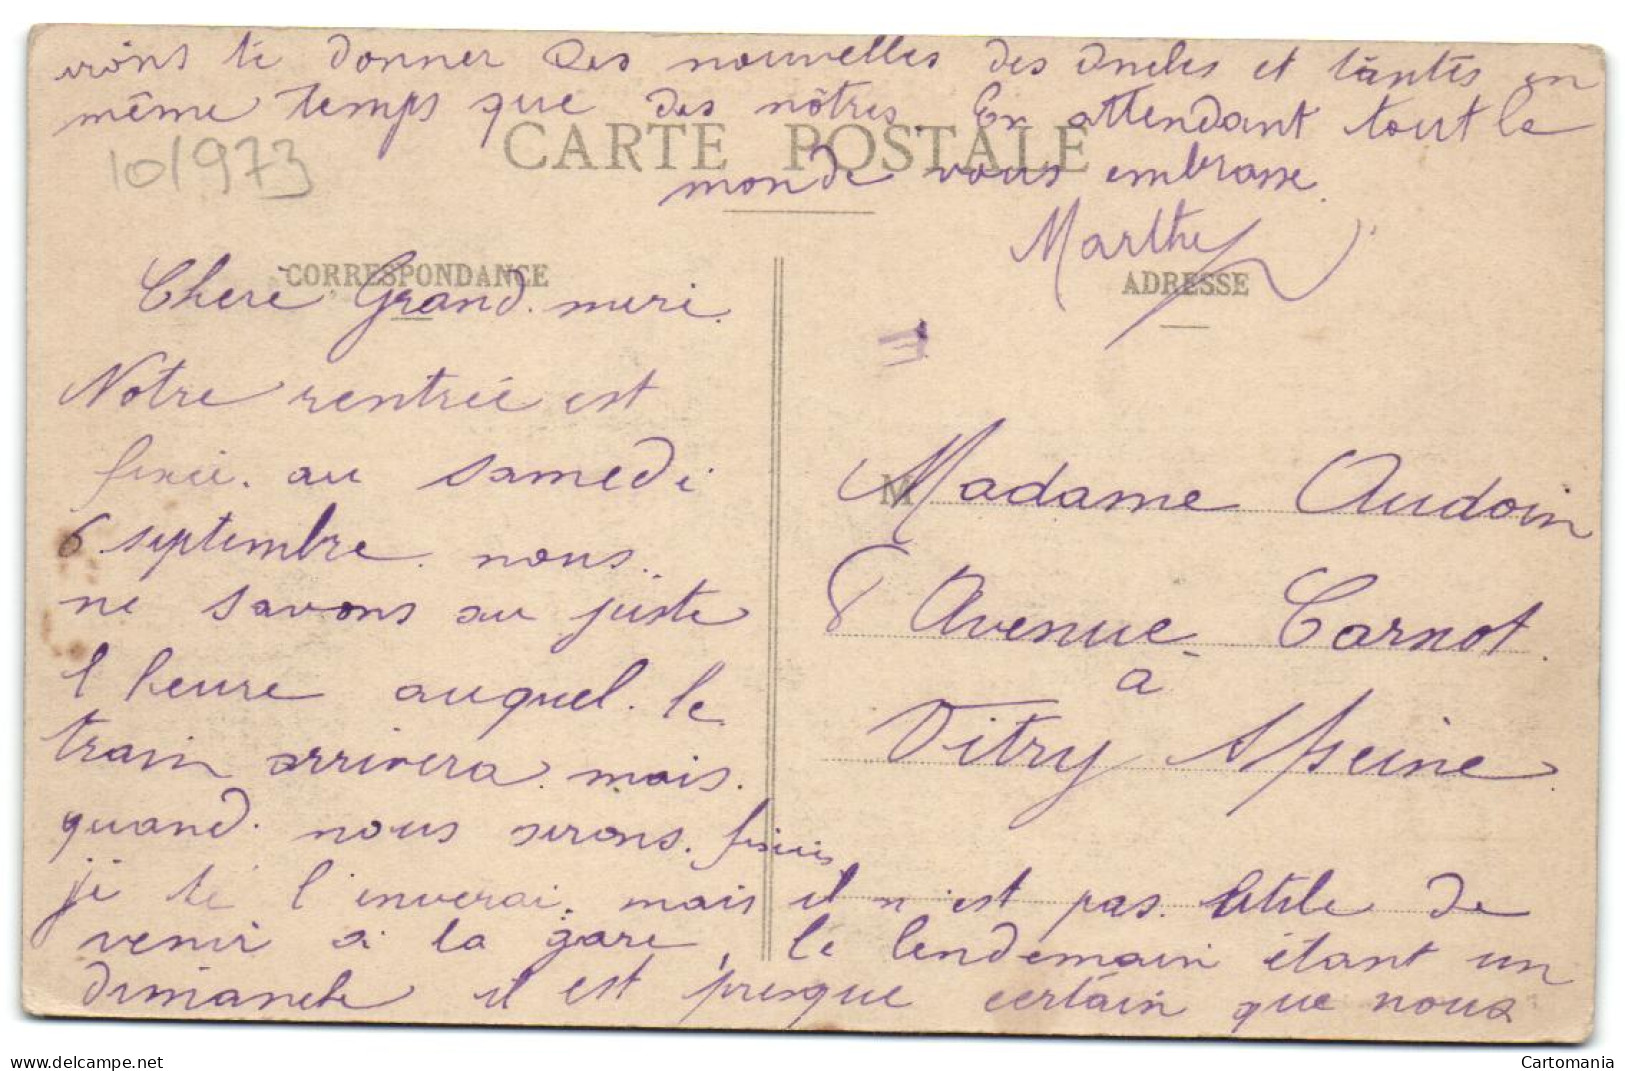 irons te donner des nouvelles des oncles et tantes en
même temps que des nôtres. En attendant tout le
CARTE POSTALE
10/973
monde vous embrasse.
Marthe
CORRESPONDANCE
ADRESSE
Chere Grand. mere.
Notre rentrée est
fixée. au samedi
6 septembre. nous.
ne savons au juste
l heure auquel. le
train arrivera. mais.
quand. nous serons. fixés
je te l'enverai. mais il n'est pas. utile de
venir à la gare, le lendemain étant un
dimanche il est presque certain que nous
M
Madame Audoin
8 Avenue Carnot.
a
Vitry s/seine
Cartomania